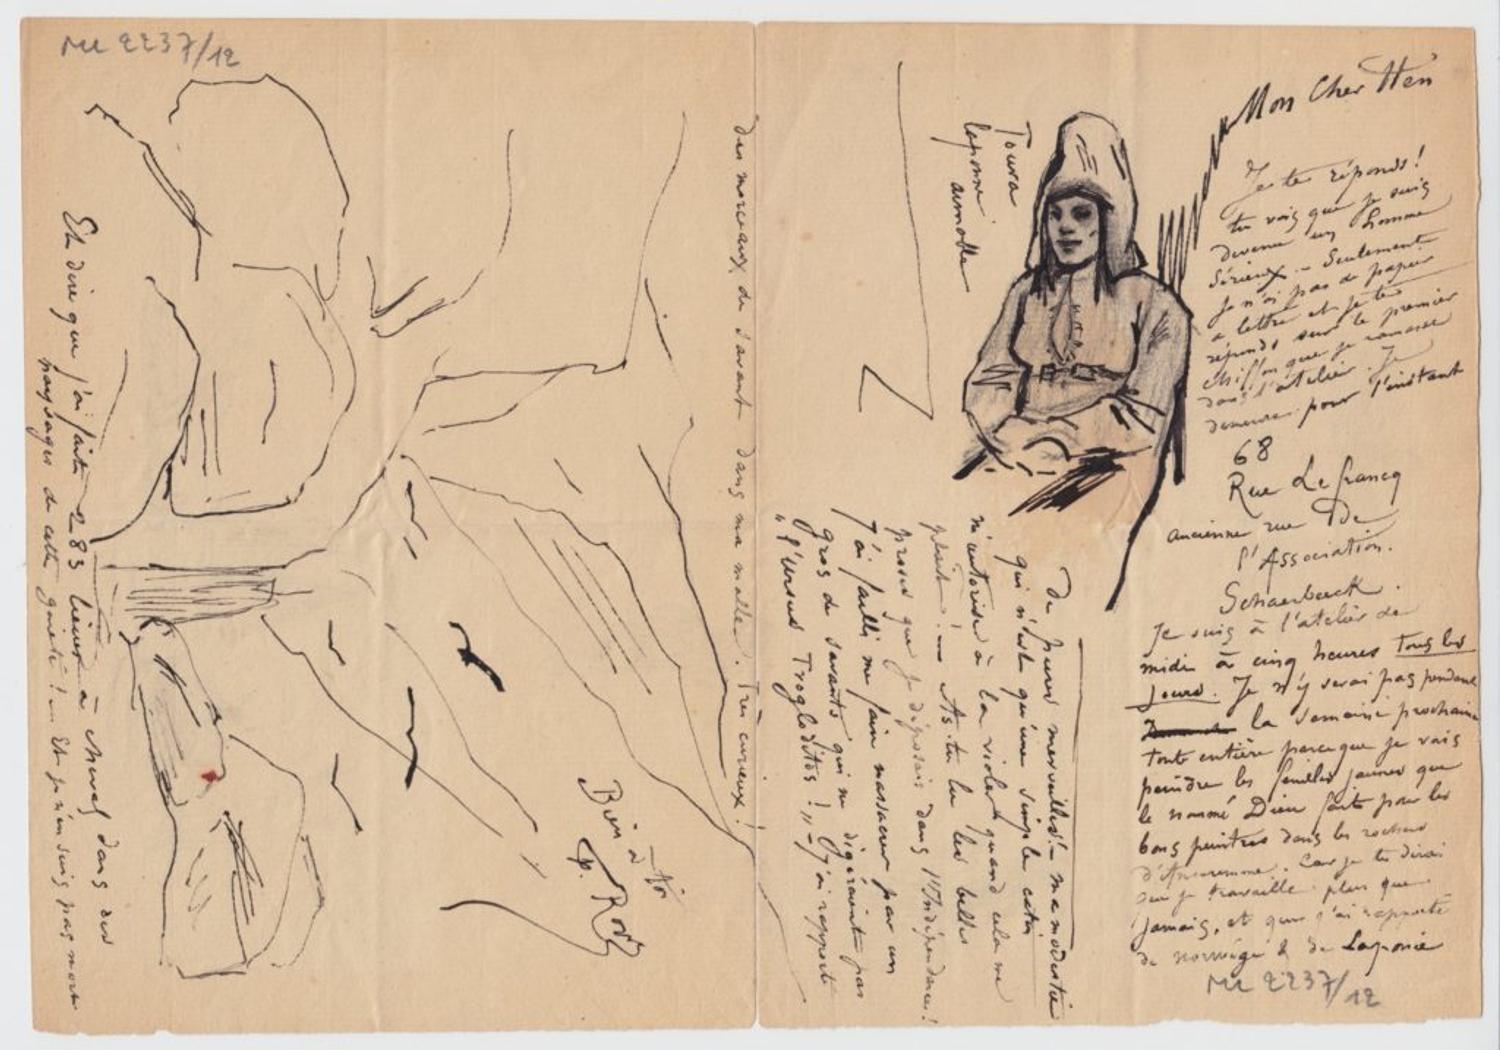 Mon Cher Hen
Je te réponds!
tu vois que je suis
devenu un homme
Sérieux. – Seulement
je n'ai pas de papier
a lettre et je te
réponds sur le premier
chiffon que je ramasse
dans l'atelier. Je
demeure pour l'instant
68
Rue Le francq
ancienne rue de
l'Association.
Schaerbeeck.
Je suis à l'atelier de
midi à cinq heures tous les
jours. Je n'y serai pas pendant
la Semaine prochaine
toute entière parceque je vais
peindre les feuilles jaunes que
le nommé Dieu fait pour les
bons peintres dans les rochers
d'Anseremme. Car je te dirai
que je travaille plus que
jamais, et que j'ai rapporté
de norwège & de Laponie
Mu 2237/12
Toura
laponne
de pures merveilles! – ma modestie
qui n'est qu'une simple catin
m'autorise à la violer quand cela me
plait! – As-tu lu les belles
proses que je déposais dans l'Indépendance!
J'ai failli me faire massacrer par un
gros de savants qui ne digéraient pas
"l'Ursus Trogloditos!" – J'ai rapporté
des morceaux de savant dans ma malle. Très curieux!
Bien à toi
Mu 2237/12
Et dire que j'ai fait 283 lieues à cheval dans des
paysages de cette gaieté! Et je n'en suis pas mort